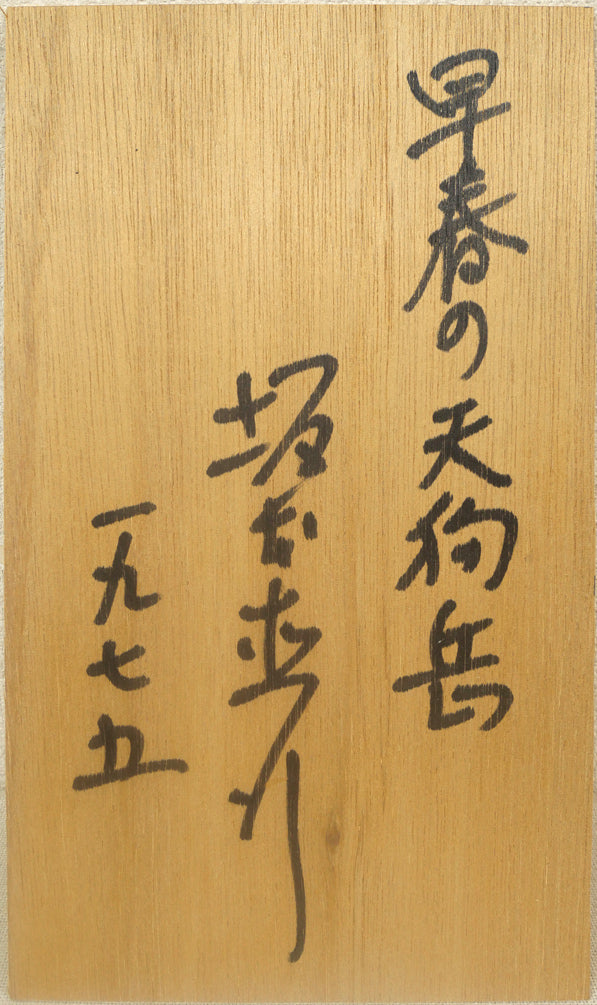 早春の天狗岳
坂本直行
一九七五